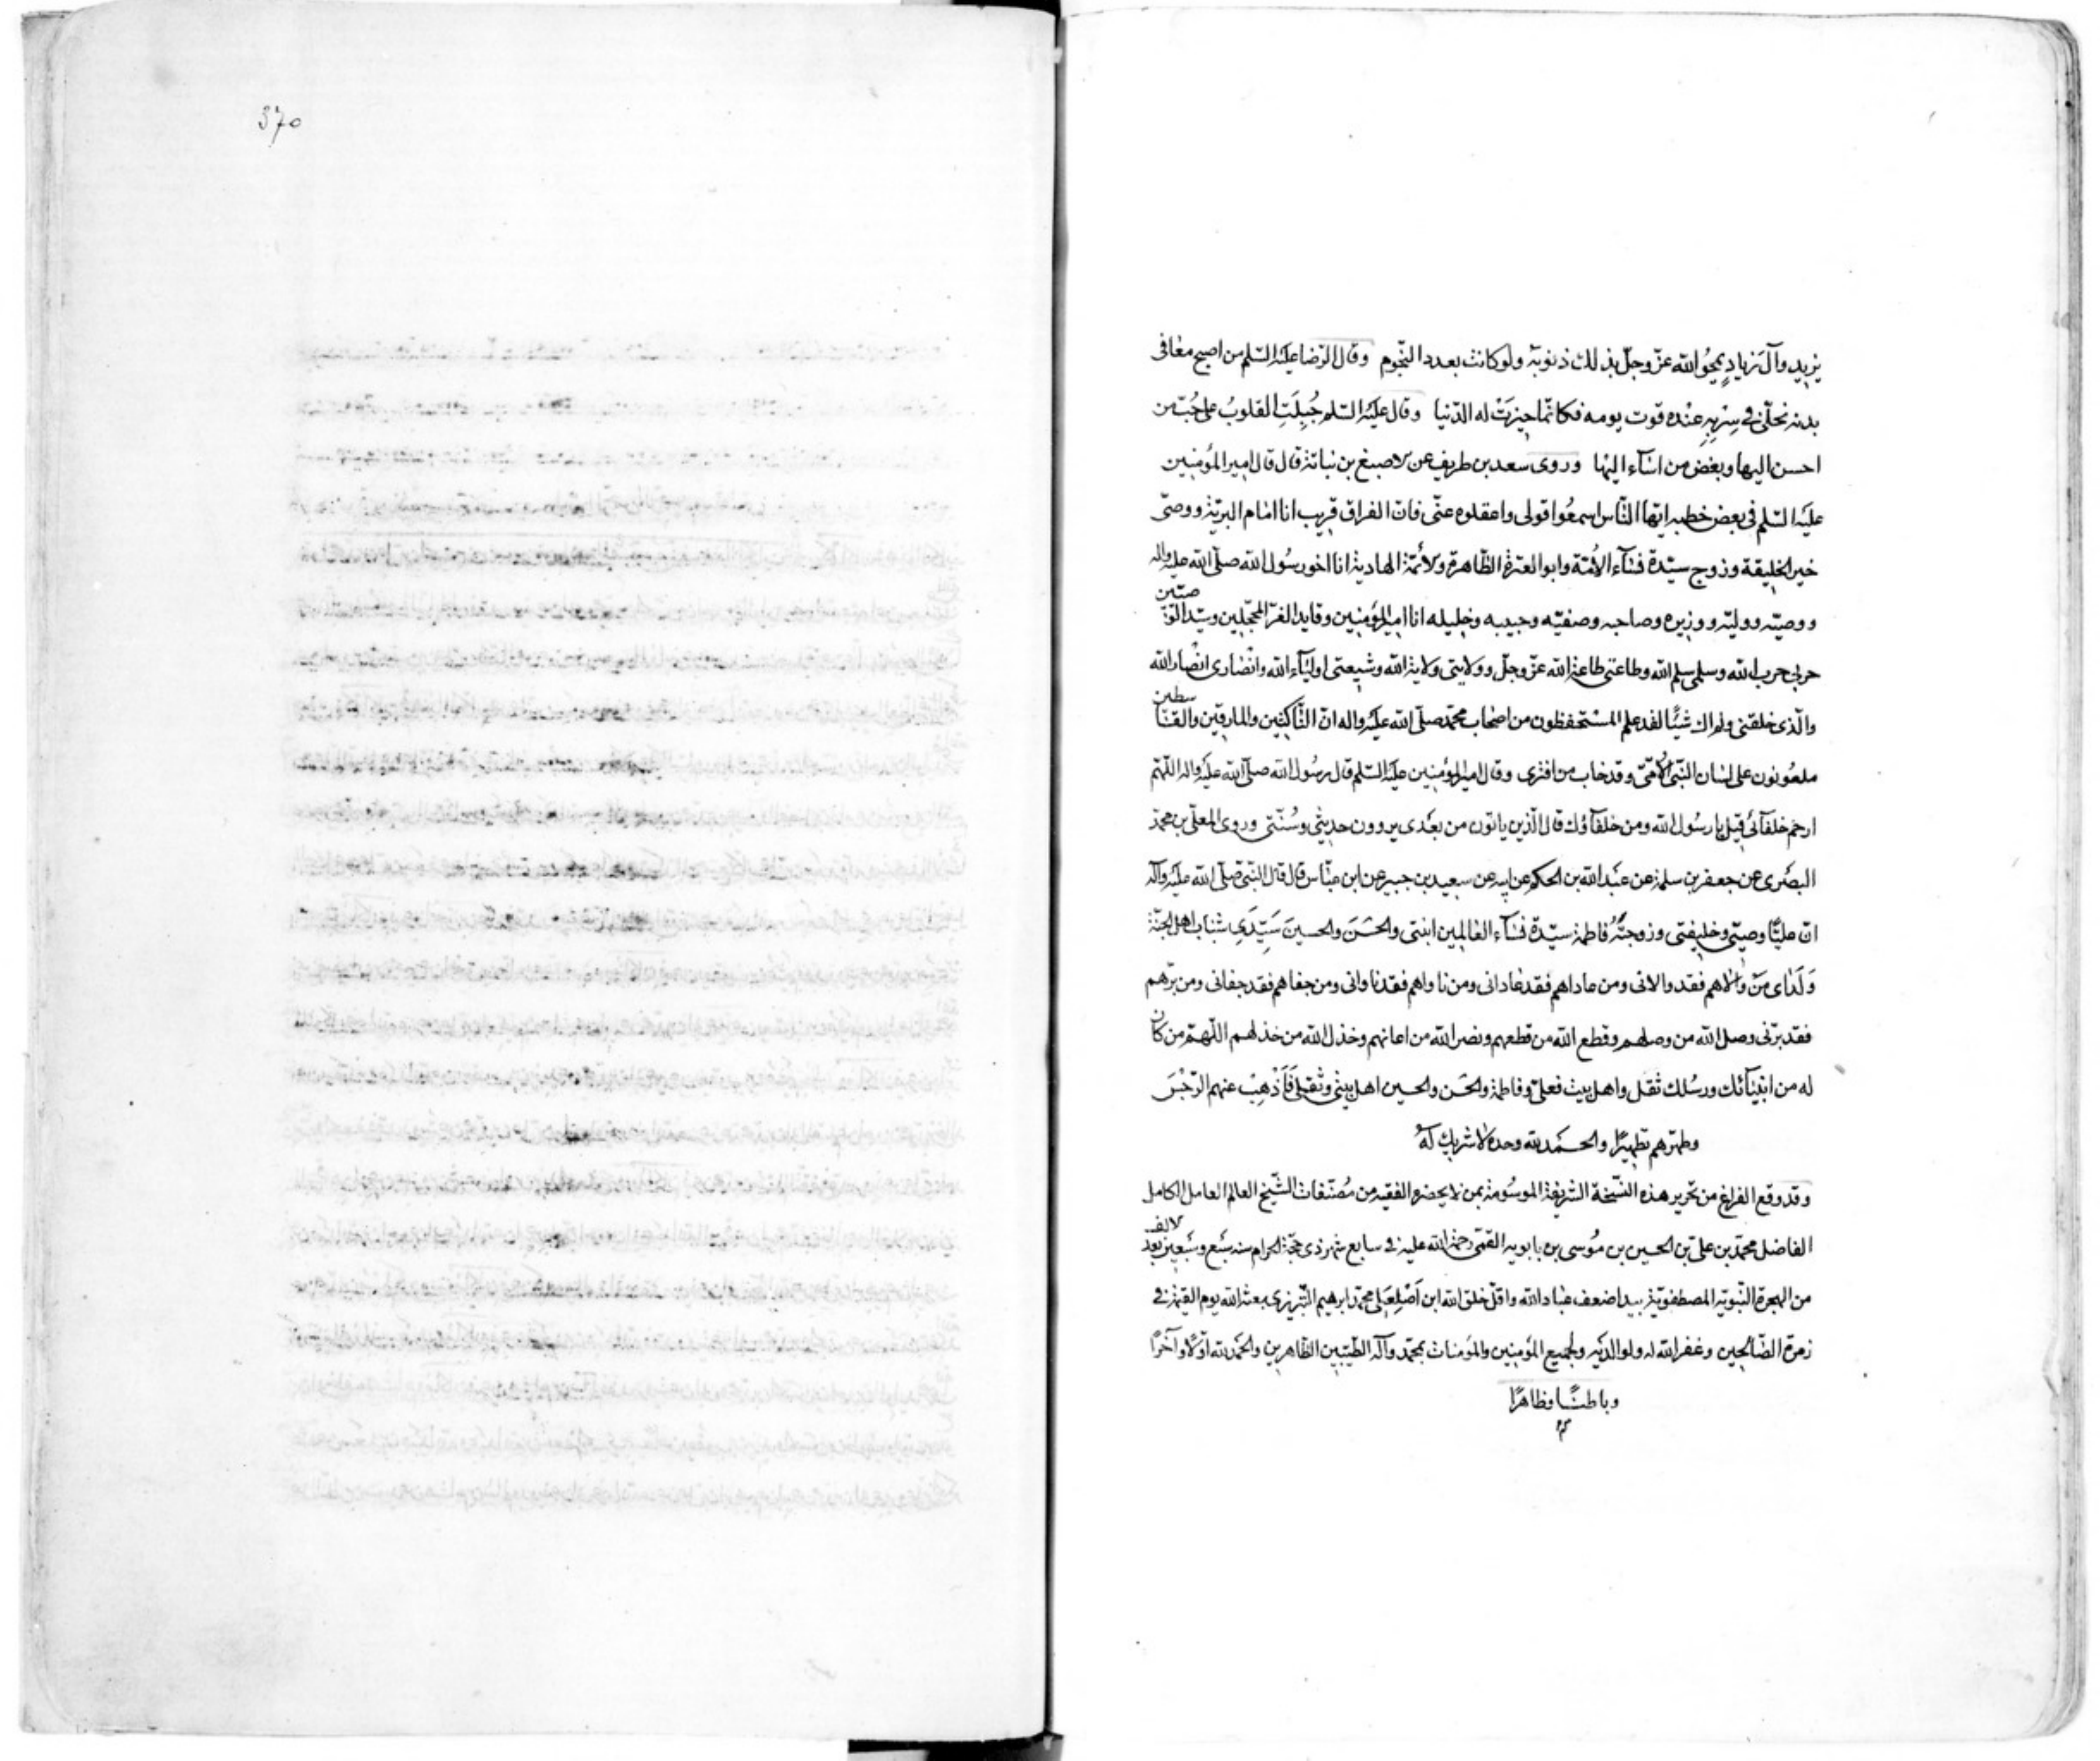 يزيد وآل زياد يمحو الله عزّ وجلّ بذلك ذنوبه ولو كانت بعدد النجوم وقال الرّضا عليه السّلم من اصبح معافى
بدنه مخلّى في سربه عنده قوت يومه فكانّما حيزت له الدّنيا وقال عليه السّلم جُبِلَتِ القلوبُ على حُبّ من
احسن اليها وبغض من اسآء اليها وروى سعد بن طريف عن الاصبغ بن نباتة قال قال امير المؤمنين
عليه السّلم في بعض خطبه ايّها النّاس اسمعُوا قولى واعقلوه عنّى فانّ الفراق قريب انا امام البريّة ووصىّ
خير الخليقة وزوج سيّدة نسآء الامّة وابو العترة الطّاهرة والائمّة الهادية انا اخو رسُول الله صلّى الله عليه واله
ووصيّه ووليّه ووزيره وصاحبه وصفيّه وحبيبه وخليله انا امير المؤمنين وقايد الغرّ المحجّلين وسيّد الوصيّين
حربى حرب الله وسلمى سلم الله وطاعتى طاعة الله عزّ وجلّ وولايتى ولاية الله وشيعتى اوليآء الله وانصارى انصار الله
والّذى خلقنى ولم اك شيئًا لقد علم المستحفظون من اصحاب محمّد صلّى الله عليه واله انّ النّاكثين والمارقين والقاسطين
ملعونون على لسان النّبىّ الامّىّ وقد خاب من افترى وقال امير المؤمنين عليه السّلم قال رسُول الله صلّى الله عليه واله اللّهمّ
ارحم خلفآئى قيل يا رسُول الله ومن خلفآؤك قال الّذين ياتون من بعدى يروون حديثى وسُنّتى وروى المعلّى بن محمّد
البصرى عن جعفر بن سلمة عن عبد الله بن الحكم عن ابيه عن سعيد بن جبير عن ابن عبّاس قال قال النّبىّ صلّى الله عليه وآله
انّ عليًّا وصيّى وخليفتى وزوجتُهُ فاطمة سيّدة نسآء العالمين ابنتى والحَسَنَ والحسينَ سَيِّدَىْ شباب اهل الجنّة
وَلَدَاىَ مَنْ والاهم فقد والانى ومن عاداهم فقد عادانى ومن ناواهم فقد ناوانى ومن جفاهم فقد جفانى ومن برّهم
فقد برّنى وصل الله من وصلهم وقطع الله من قطعهم ونصر الله من اعانهم وخذل الله من خذلهم اللّهمّ من كان
له من انبيآئك ورسُلك ثقل واهل بيت فعلىّ وفاطمة والحَسن والحسين اهل بيتى وثقلى فَاَذْهِبْ عنهم الرّجْسَ
وطهّرهم تطهيرًا والحمد لله وحده لا شريك له
وقد وقع الفراغ من تحرير هذه النّسخة الشّريفة الموسُومة بمن لا يحضره الفقيه من مُصنّفات الشّيخ العالم العامل الكامل
الفاضل محمّد بن علىّ بن الحسين بن مُوسى بن بابويه القمّى رحمة الله عليه في سابع شهر ذى حجّة الحرام سنه سَبع وسَبعين بعد الالف
من الهجرة النّبويّة المصطفويّة بيد اضعف عباد الله واقلّ خلق الله ابن محمّد ابرهيم التّبريزى بعثه الله يوم القيمة في
زمرة الصّالحين وغفر الله له ولوالديه ولجميع المؤمنين والمؤمنات بمحمّد وآله الطّيّبين الطّاهرين والحمد لله اوّلًا وآخرًا
وباطنًا وظاهرًا
م
370